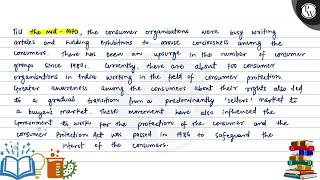 Till the mid-1970, the consumer organisations were busy writing
articles and holding exhibitions to arouse conciousness among the
consumers. There has been an upsurge in the number of consumer
groups since 1980s. Currently, there are about 700 consumer
organisations in India working in the field of consumer protection.
Greater awareness among the consumers about their rights also led
to a gradual transition from a predominantly 'sellers' market to
a buyers market. These movement have also influenced the
Government to work for the protection of the consumer and the
consumer Protection Act was passed in 1986 to safeguard the
interst of the consumers.